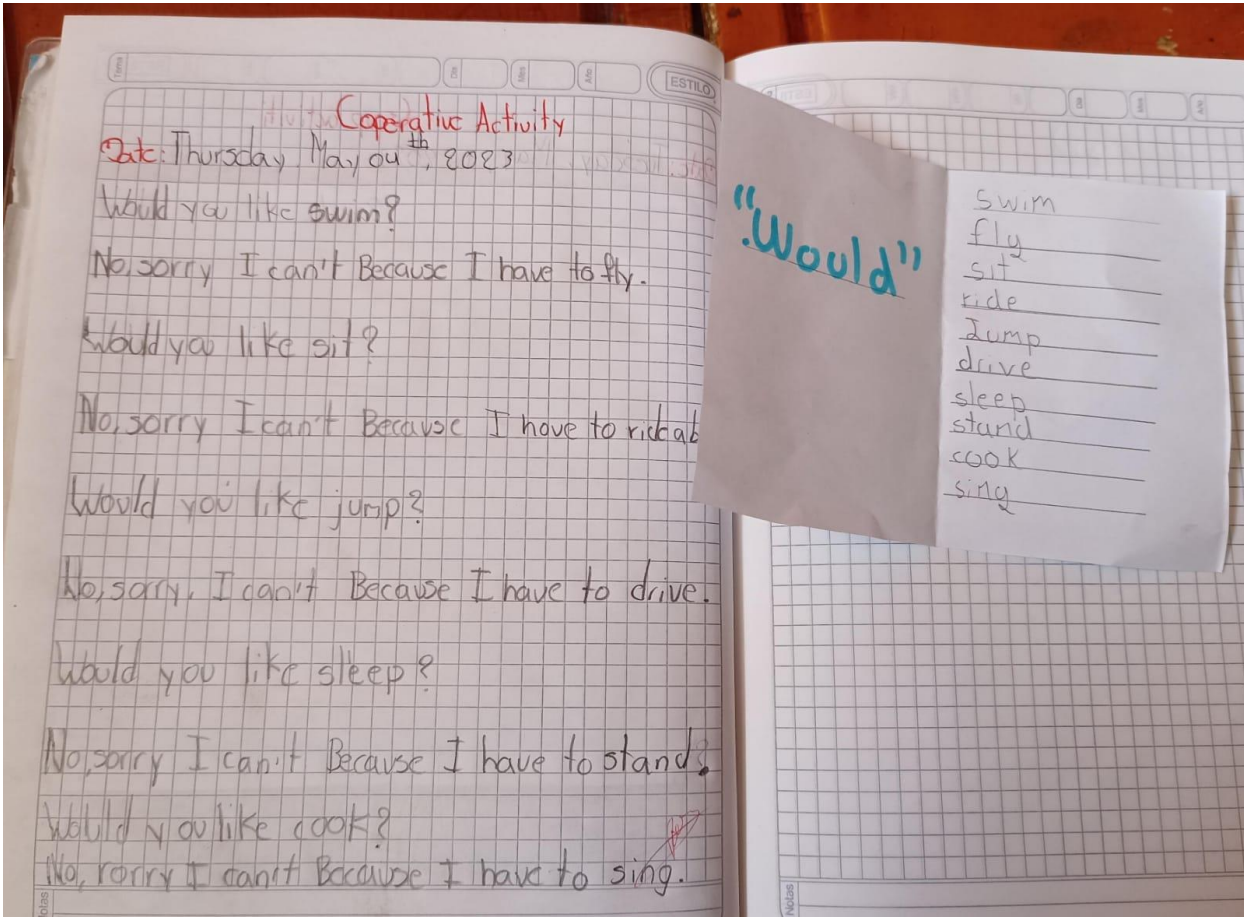 Tema
Día
Mes
Año
ESTILO
Coperative Activity
Date: Thursday, May 04th, 2023
Would you like swim?
No, sorry I can't Because I have to fly.
Would you like sit?
No, sorry I can't Because I have to
Would you like jump?
No, sorry, I can't Because I have to drive.
Would you like sleep?
No, sorry I can't Because I have to stand.
Would you like cook?
No, rorry I can't Because I have to sing.
Notas
"Would"
swim
fly
sit
ride
Jump
drive
sleep
stand
cook
sing
Notas